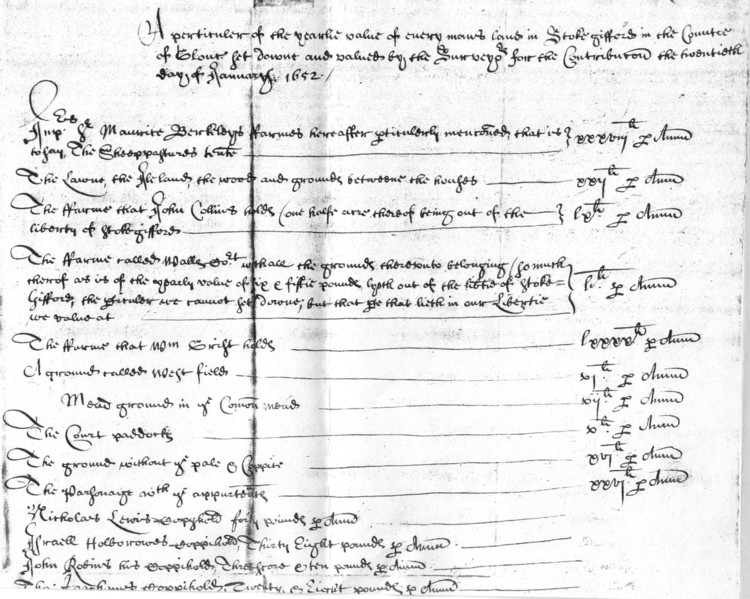 A perticuler of the yearlie value of every mans land in Stoke gifford in the Countie
of Glouc set downe and valued by the Survey^rs for the Contribution the twentieth
day of January 1652
Inp Maurice Berkeleys ffarmes hereafter pticulerly mentioned, that is } xxxvii^li p Annu
to say, The Sheeppastures tente
The Lawne, the Island, the wood and grounds betweene the houses xxii^li p Annu
The ffarme that John Collins holds (one halfe acre thereof being out of the } lx^li p Annu
liberty of Stokegifford
The ffarme called Walls Co^rt with all the grounds thereunto belonging (so much
therof as is of the yearly value of six & fiftie pounds lyeth out of the libtie of Stoke=
Gifford, the pticuler we cannot set downe, but that pte that lieth in our Libertie } l^li p Annu
we value at
The ffarme that W^m holds lxxxx^li p Annu
A ground called West field xi^li p Annu
Mead ground in y^e Comon mead xii^li p Annu
The Court paddock x^li p Annu
The ground without y^e pale & Coppice xvi^li p Annu
The Parsonage wth y^e appurtenass xxvi^li p Annu
Nicholas Lewis Coppyhold forty pounds p Annu
Israell Holborowes Coppihold Thirty Eight pounds p Annu
John Robins his Coppihold Threescore & ten pounds p Annu
Coppihold Twenty & Eight pounds p Annu